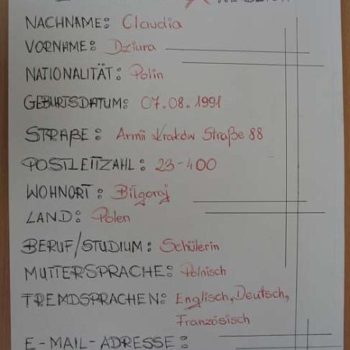 NACHNAME: Claudia
VORNAME: Dziura
NATIONALITÄT: Polin
GEBURTSDATUM: 07.08.1991
STRAßE: Armii Kraków Straße 88
POSTLEITZAHL: 23-400
WOHNORT: Biłgoraj
LAND: Polen
BERUF/STUDIUM: Schülerin
MUTTERSPRACHE: Polnisch
TREMDSPRACHEN: Englisch, Deutsch,
Französisch
E-MAIL-ADRESSE: